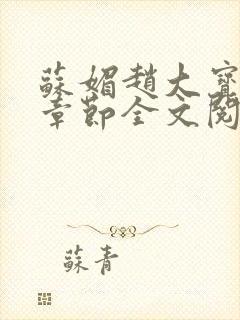 蘇媚趙大寶
章節全文閱
蘇青